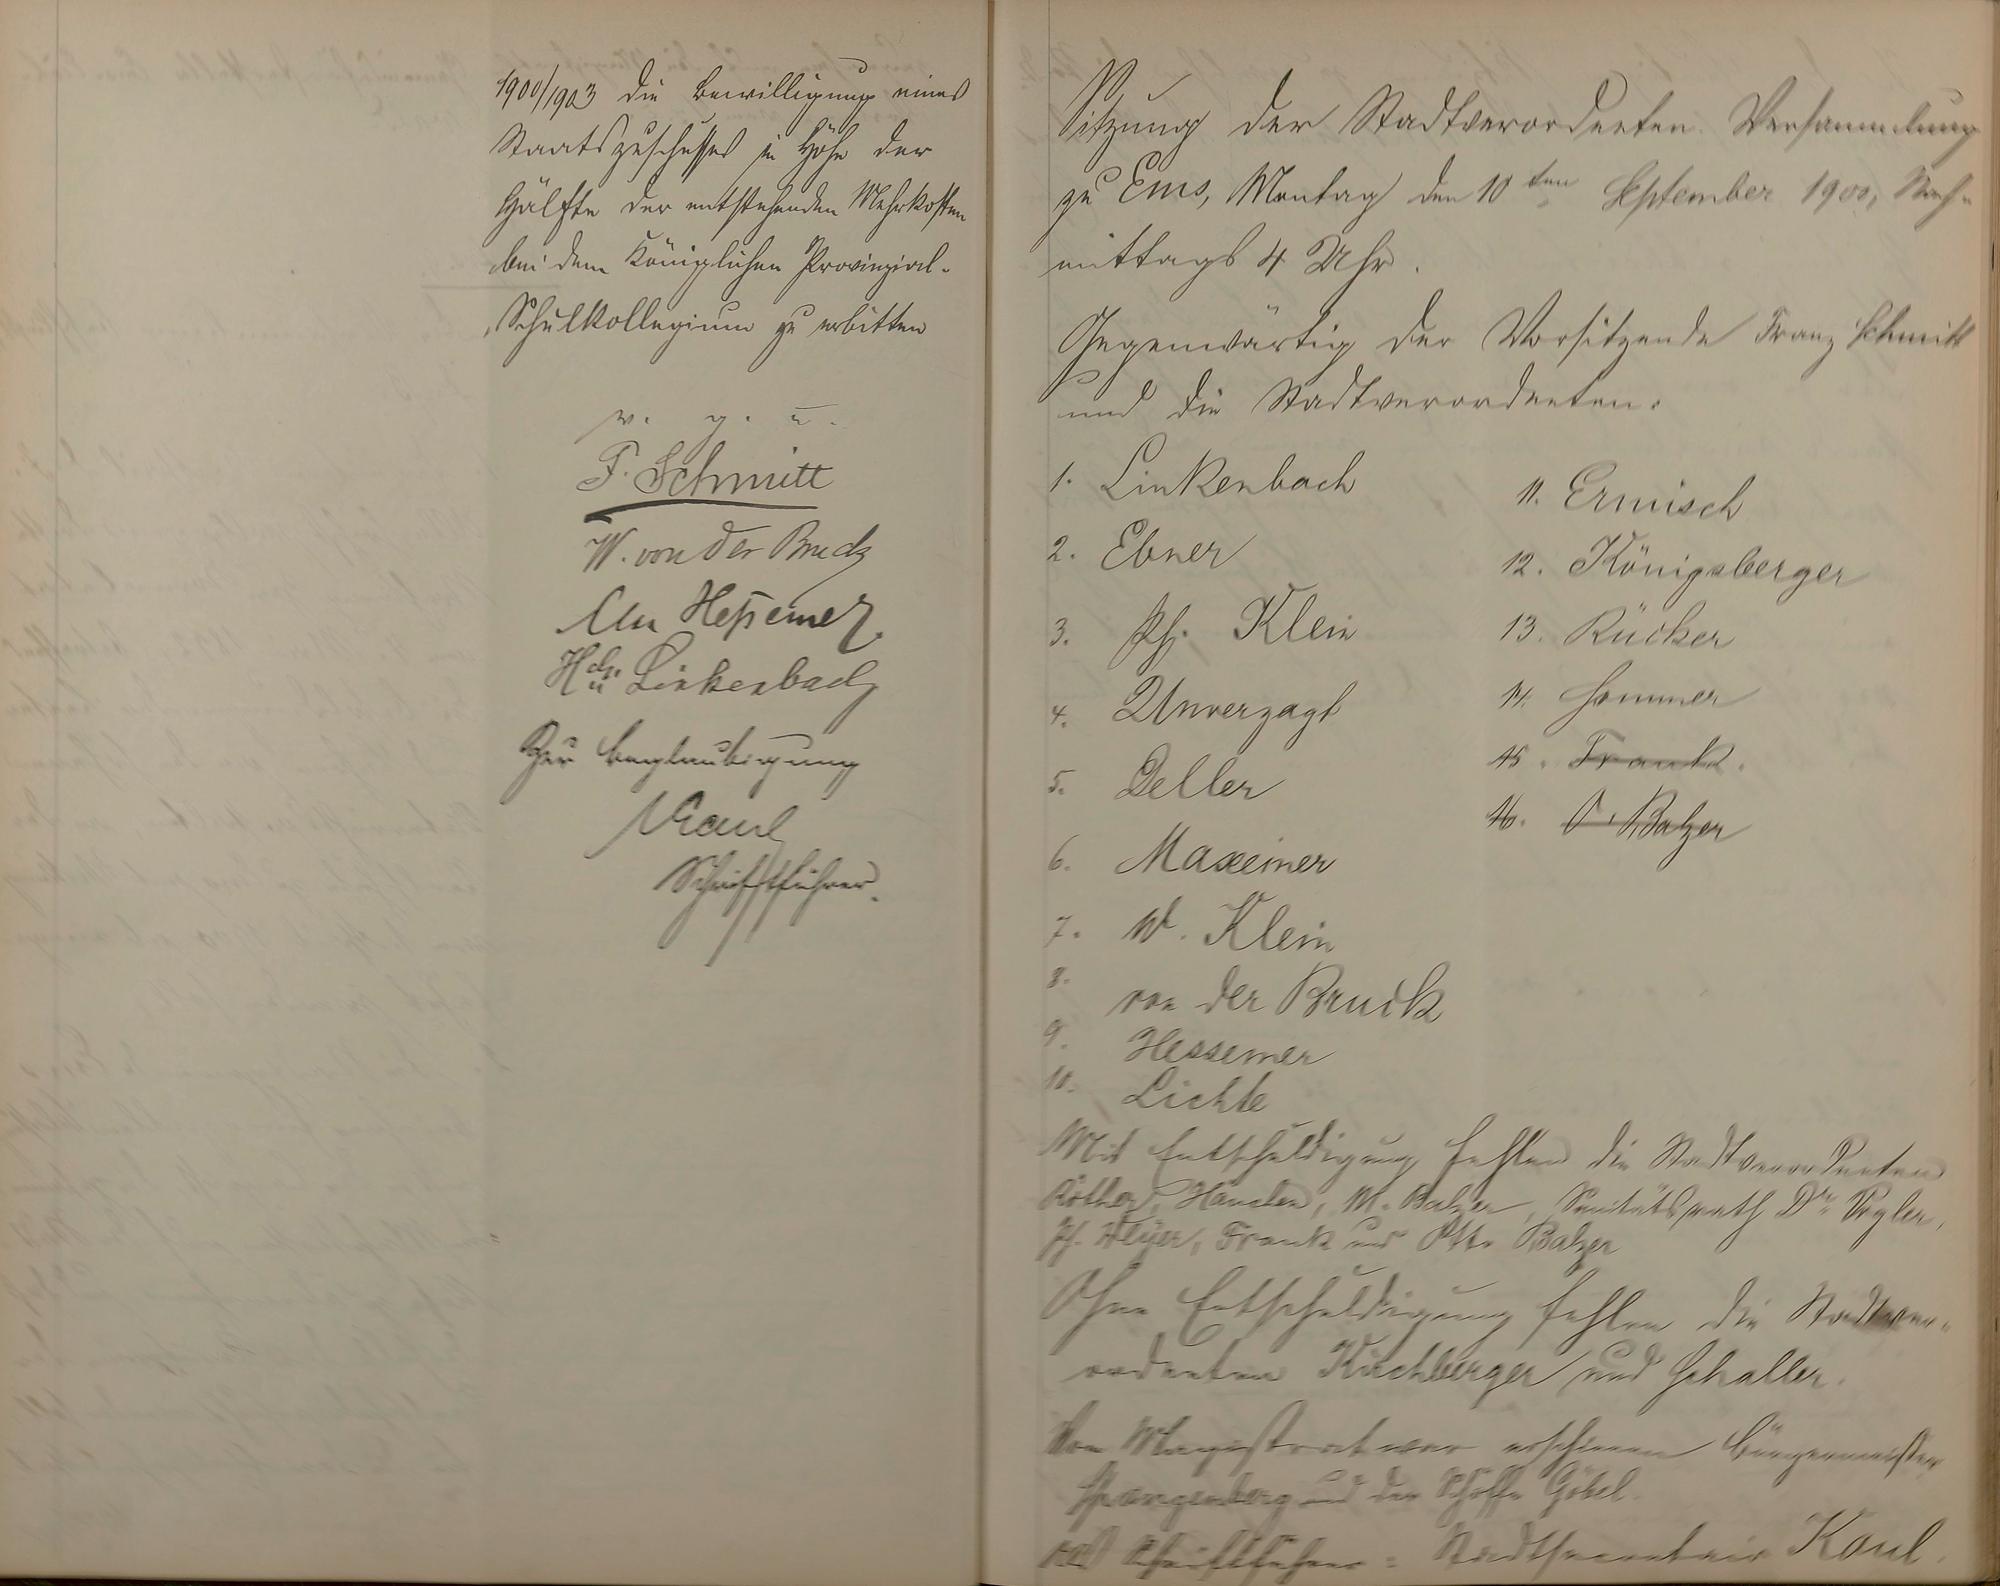 1900/1903 die Bewilligung eines
Staatszuschusses in Höhe der
Hälfte der entstehenden Mehrkosten
bei dem Königlichen Provinzial-
Schulkollegium zu erbitten
v. g. u.
F. Schmitt
W. von der Bruck
Hessemer
Hch. Linkenbach
Zur Beglaubigung
Kaul
Schriftführer.
Sitzung der Stadtverordneten Versammlung
zu Ems, Montag den 10ten September 1900, Nach-
mittags 4 Uhr.
Gegenwärtig der Vorsitzende Franz Schmitt
und die Stadtverordneten:
1. Linkenbach
2. Ebner
3. Ph. Klein
4. Unverzagt
5. Deller
6. Maxeiner
7. W. Klein
8. von der Bruck
9. Hessemer
10. Lichte
11. Ermisch
12. Königsberger
13. Rücker
14. Sommer
15. Frank.
16. O. Balzer
Mit Entschuldigung fehlen die Stadtverordneten
M. Balzer, Sanitätsrath Dr. Vogler,
Ph. Meyer, Frank und Otto Balzer
Ohne Entschuldigung fehlen die Stadtver-
ordneten Kirchberger und Schaller.
Vom Magistrat war erschienen Bürgermeister
Spangenberg und der Schöffe Göbel.
als Schriftführer: Stadtsecretair Kaul.